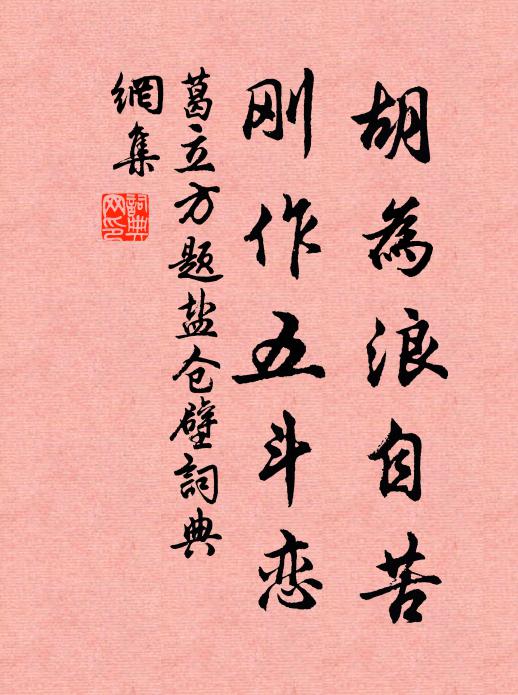 胡為浪自苦
刚作五斗恋
葛立方题盐仓壁詞典
網集
詞典
网印